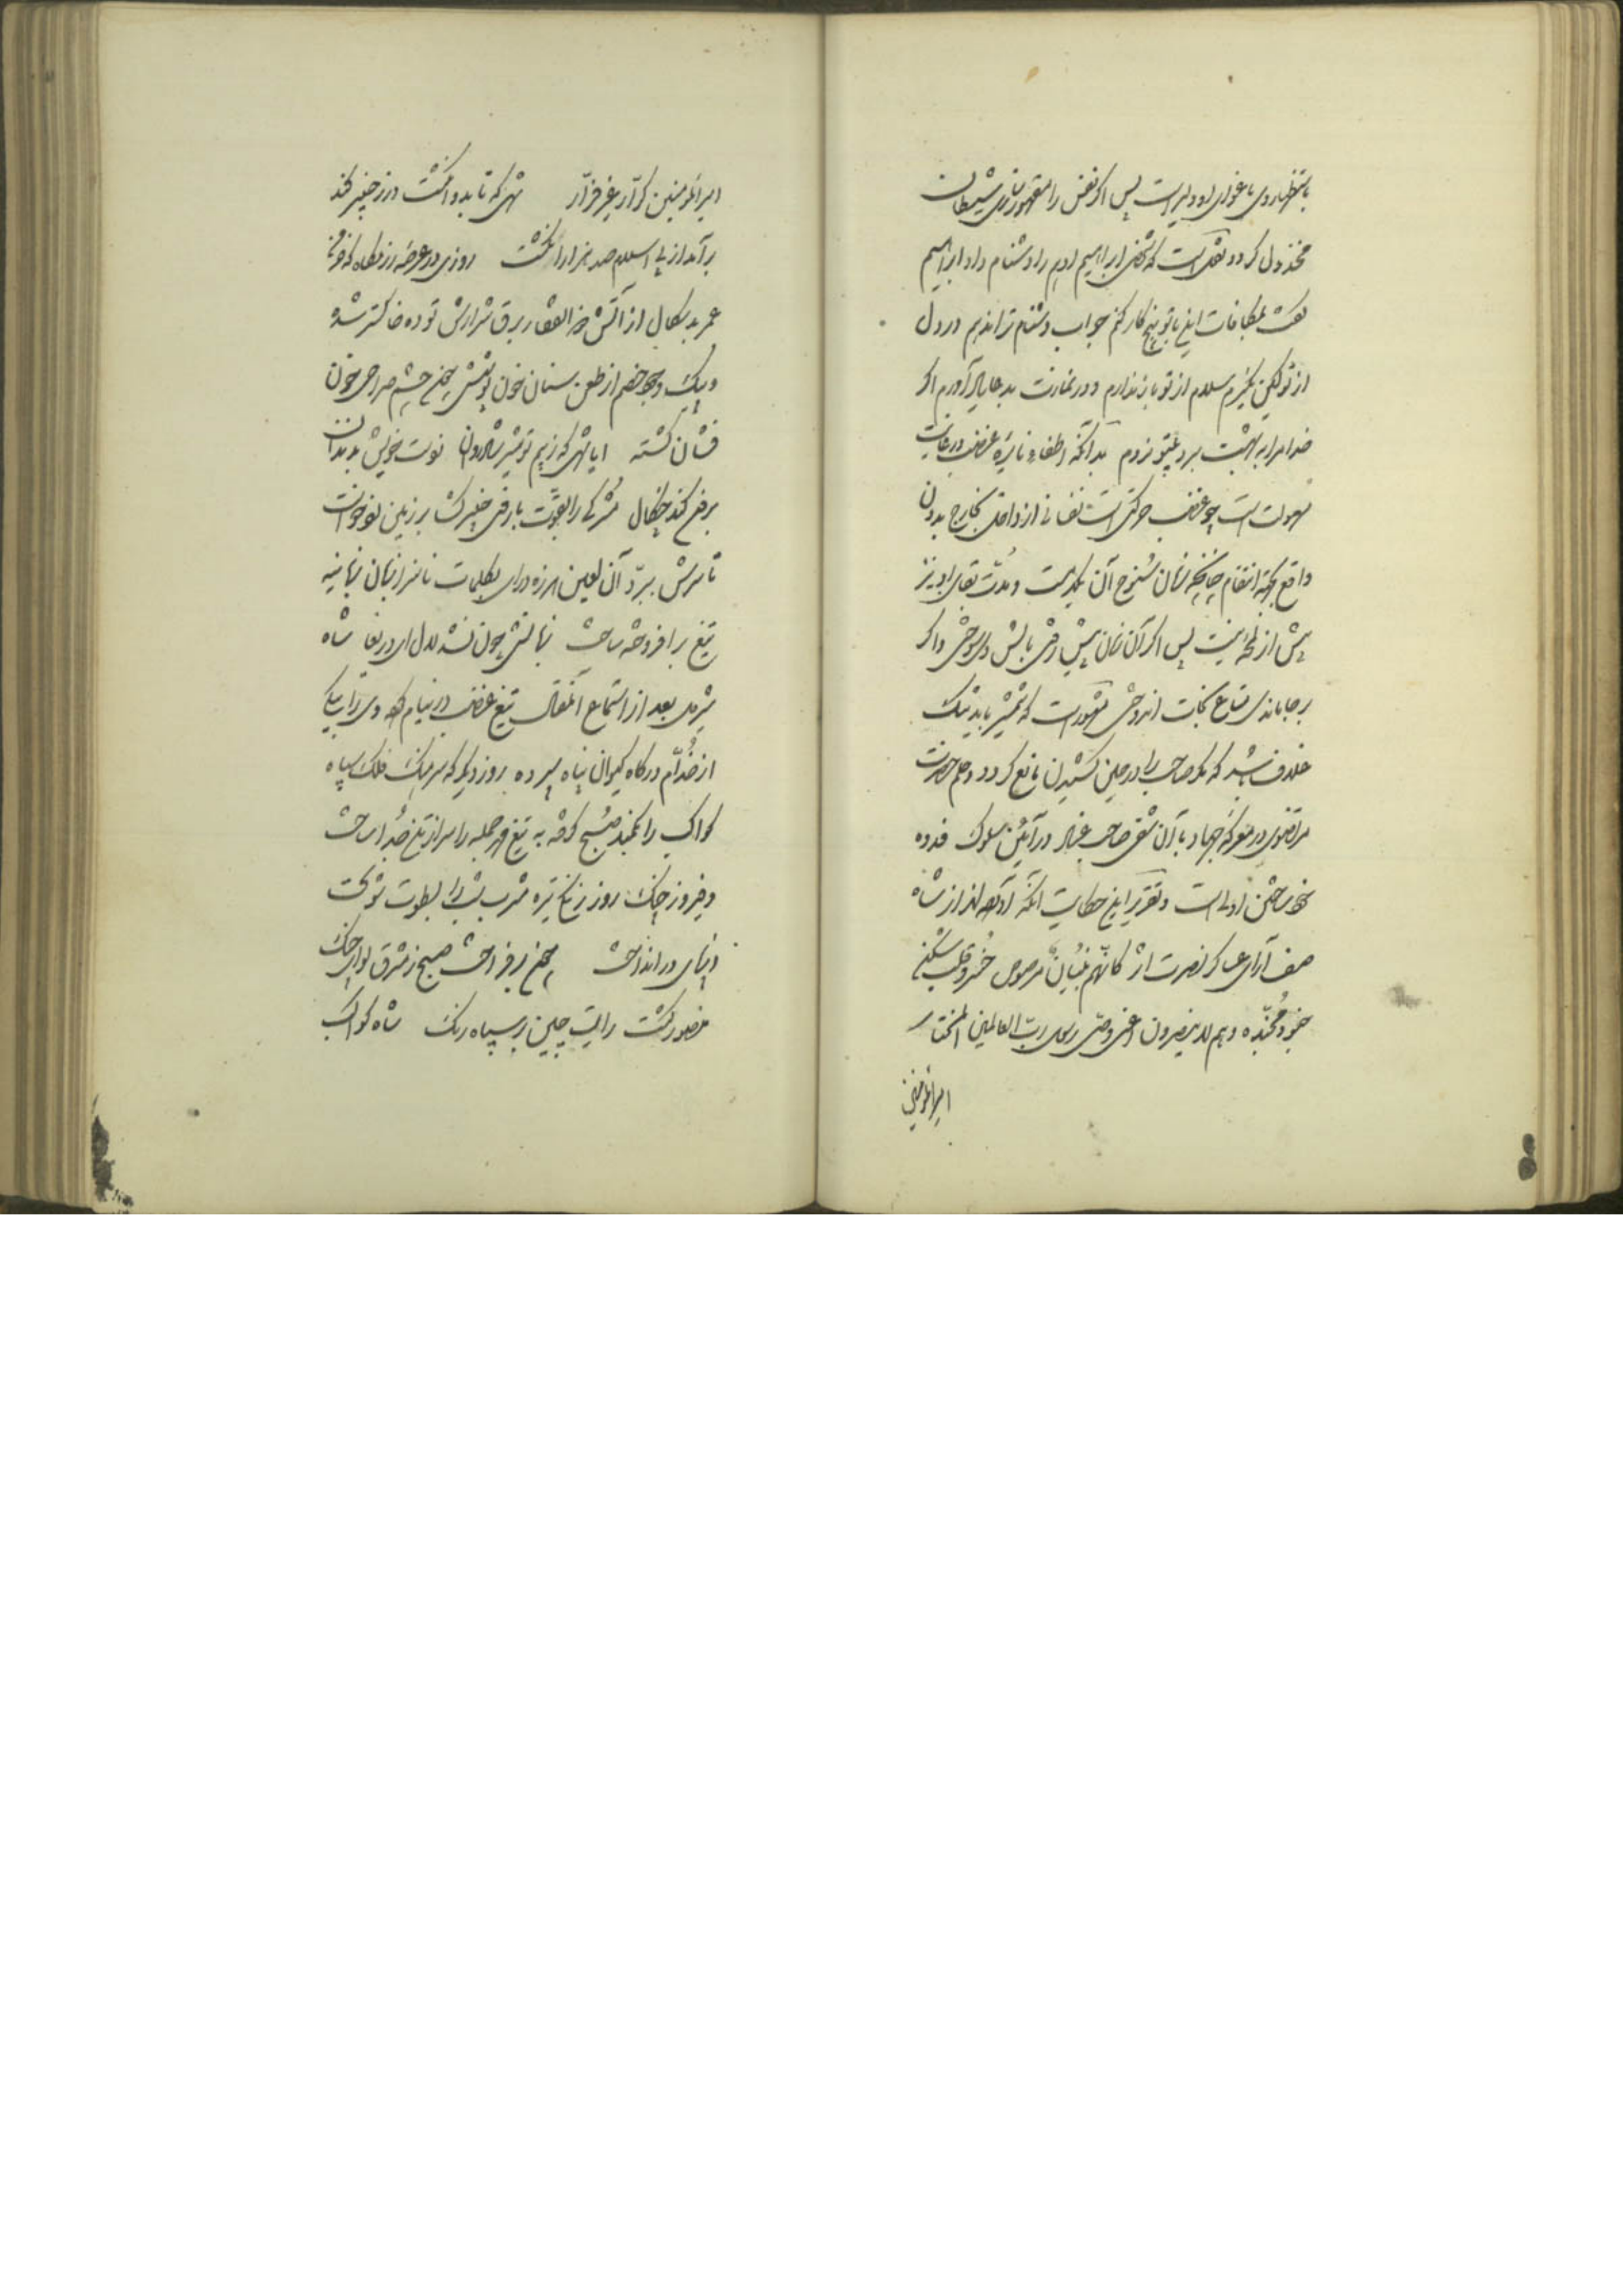 باستظهار وی باغوای او دلیر است پس اگر نفس را مقهور سازی شیطان
مخذول گردد نقلست که شخصی ابراهیم ادهم را دشنام داد ابراهیم
گفت بمکافات این با تو پنج کار کنم جواب دشنام ترا ندهم در دل
از تو کین نگیرم سلام از تو باز ندارم و در نمازت بدعا یاد آورم اگر
خدا مرا به بهشت برد بیتو نروم بدانکه اطفاء نایره غضب در غایت
سهولت است چو غضب حرکتی است نفسانی از داخل بخارج بدن
واقع بجهة انتقام چنانچه زمان سُنوح آن یکدمست و مدّت بقای او نیز
بیش از لمحه نیست پس اگر آن زمان پیش رفتی بآتش وی سوختی و اگر
بر جا ماندی متاع نجات اندوختی مشهور است که شمشیر باید تیک
غلاف باشد که مکر صاحب را در حین کشیدن مانع گردد و حلم حضرت
مرتضوی در معرکه جهاد با آن شقی صاحب عناد در آئین سلوک قدوه
ساختن اولی است و تقریر این حکایت آنکه آورده‌اند از شاه
صف آرای عساکر نصرت اثر کانّهم بُنیانٌ مرصوص خسرو قلب شکن
جنودٌ مجنّده و هم لا ینصرون اعنی وصیّ رسول ربّ العالمین المختار
امیرالمؤمنین
امیرالمؤمنین کرّار غیر فرّار شهی که تا بدو انگشت در ز خیبر کند
برآمد از پی اسلام صد هزار انگشت روزی در عرصه رزمگاه که خرمن
عمر بدسگال از آتش ذوالفقار برق شرارش توده خاکستر شده
و یک وجود خصم از طعن سنان خون چشم صراحی خون
فشان گشته ایا شهی که ز بیم تو شیر شادروان نوبت خویش بدندان
برون کند چنگال مُشرکی را بقوّت بازوی خیبر گشا بر زمین زد خواست
تا سرش ببرّد آن لعین هرزه درای بکلمات ناسزا زبان
تیغ بر افروخته ساخت زبانش چون نشد لال ای دریغا شاه
شیر دل بعد از استماع آنمقال تیغ غضب در نیام کرده وی را بیکی
از خُدّام درگاه کیوان پناه سپرده روز دیگر که سرهنگ فلک سپاه
کواکب را بکمند صبح گرفته به تیغ قهر جمله را سر از تن جدا ساخت
و فیروز جنگ روز زنگی تیره مشرب شب را بسطوت شوکت
از پای در انداخت چون بفراخت صبح ز مشرق لوای جنگ
منصور گشت رایت چین بر سپاه زنگ شاه کواکب